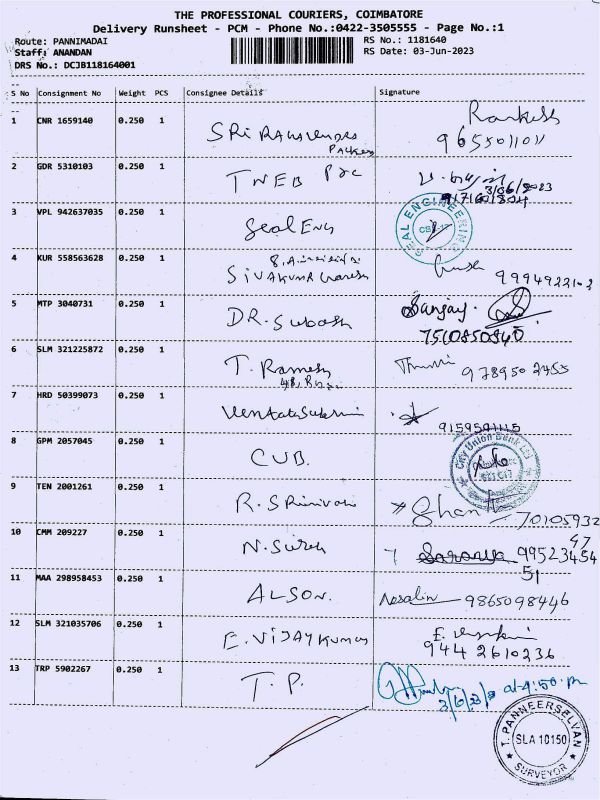 THE PROFESSIONAL COURIERS, COIMBATORE
Delivery Runsheet - PCM - Phone No.:0422-3505555 - Page No.:1
Route: PANNIMADAI
RS No.: 1181640
Staff: ANANDAN
RS Date: 03-Jun-2023
DRS No.: DCJB118164001
S No Consignment No Weight PCS Consignee Details Signature
1 CNR 1659140 0.250 1 SRi Packers
9655011011
2 GDR 5310103 0.250 1 TNEB
3/06/2023
3 VPL 942637035 0.250 1 Seal Eng
SEAL ENGINEERING
4 KUR 558563628 0.250 1 SIVAKUMAR
5 MTP 3040731 0.250 1 DR. Subash Sanjay.
7510850840
6 SLM 321225872 0.250 1 T. Ramesh
9789502455
7 HRD 50399073 0.250 1
9159591115
8 GPM 2057045 0.250 1 CUB.
City Union Bank Ltd
9 TEN 2001261 0.250 1 R. Srinivasan
70105932
47
10 CMM 209227 0.250 1 N. Suresh Saranya 99523454
51
11 MAA 298958453 0.250 1 ALSON. Rosalin 9865098446
12 SLM 321035706 0.250 1 E. VIJAYKUMAR
9442610236
13 TRP 5902267 0.250 1 T. P.
3/6/23 at 4:50 Pm
T. PANNEERSELVAN
SLA 10150
SURVEYOR